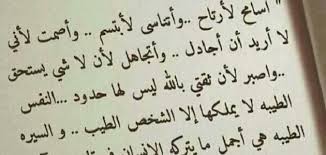 " أسامح لأرتاح ..وأتناسى لأبتسم .. وأصمت لأني
لا أريد أن أجادل .. وأتجاهل لأن لا شي يستحق
..واصبر لأن ثقتي بالله ليس لها حدود ...النفس
الطيبه لا يملكها إلا الشخص الطيب .. و السيره
الطيبه هي أجمل ما يتركه الإنسان في